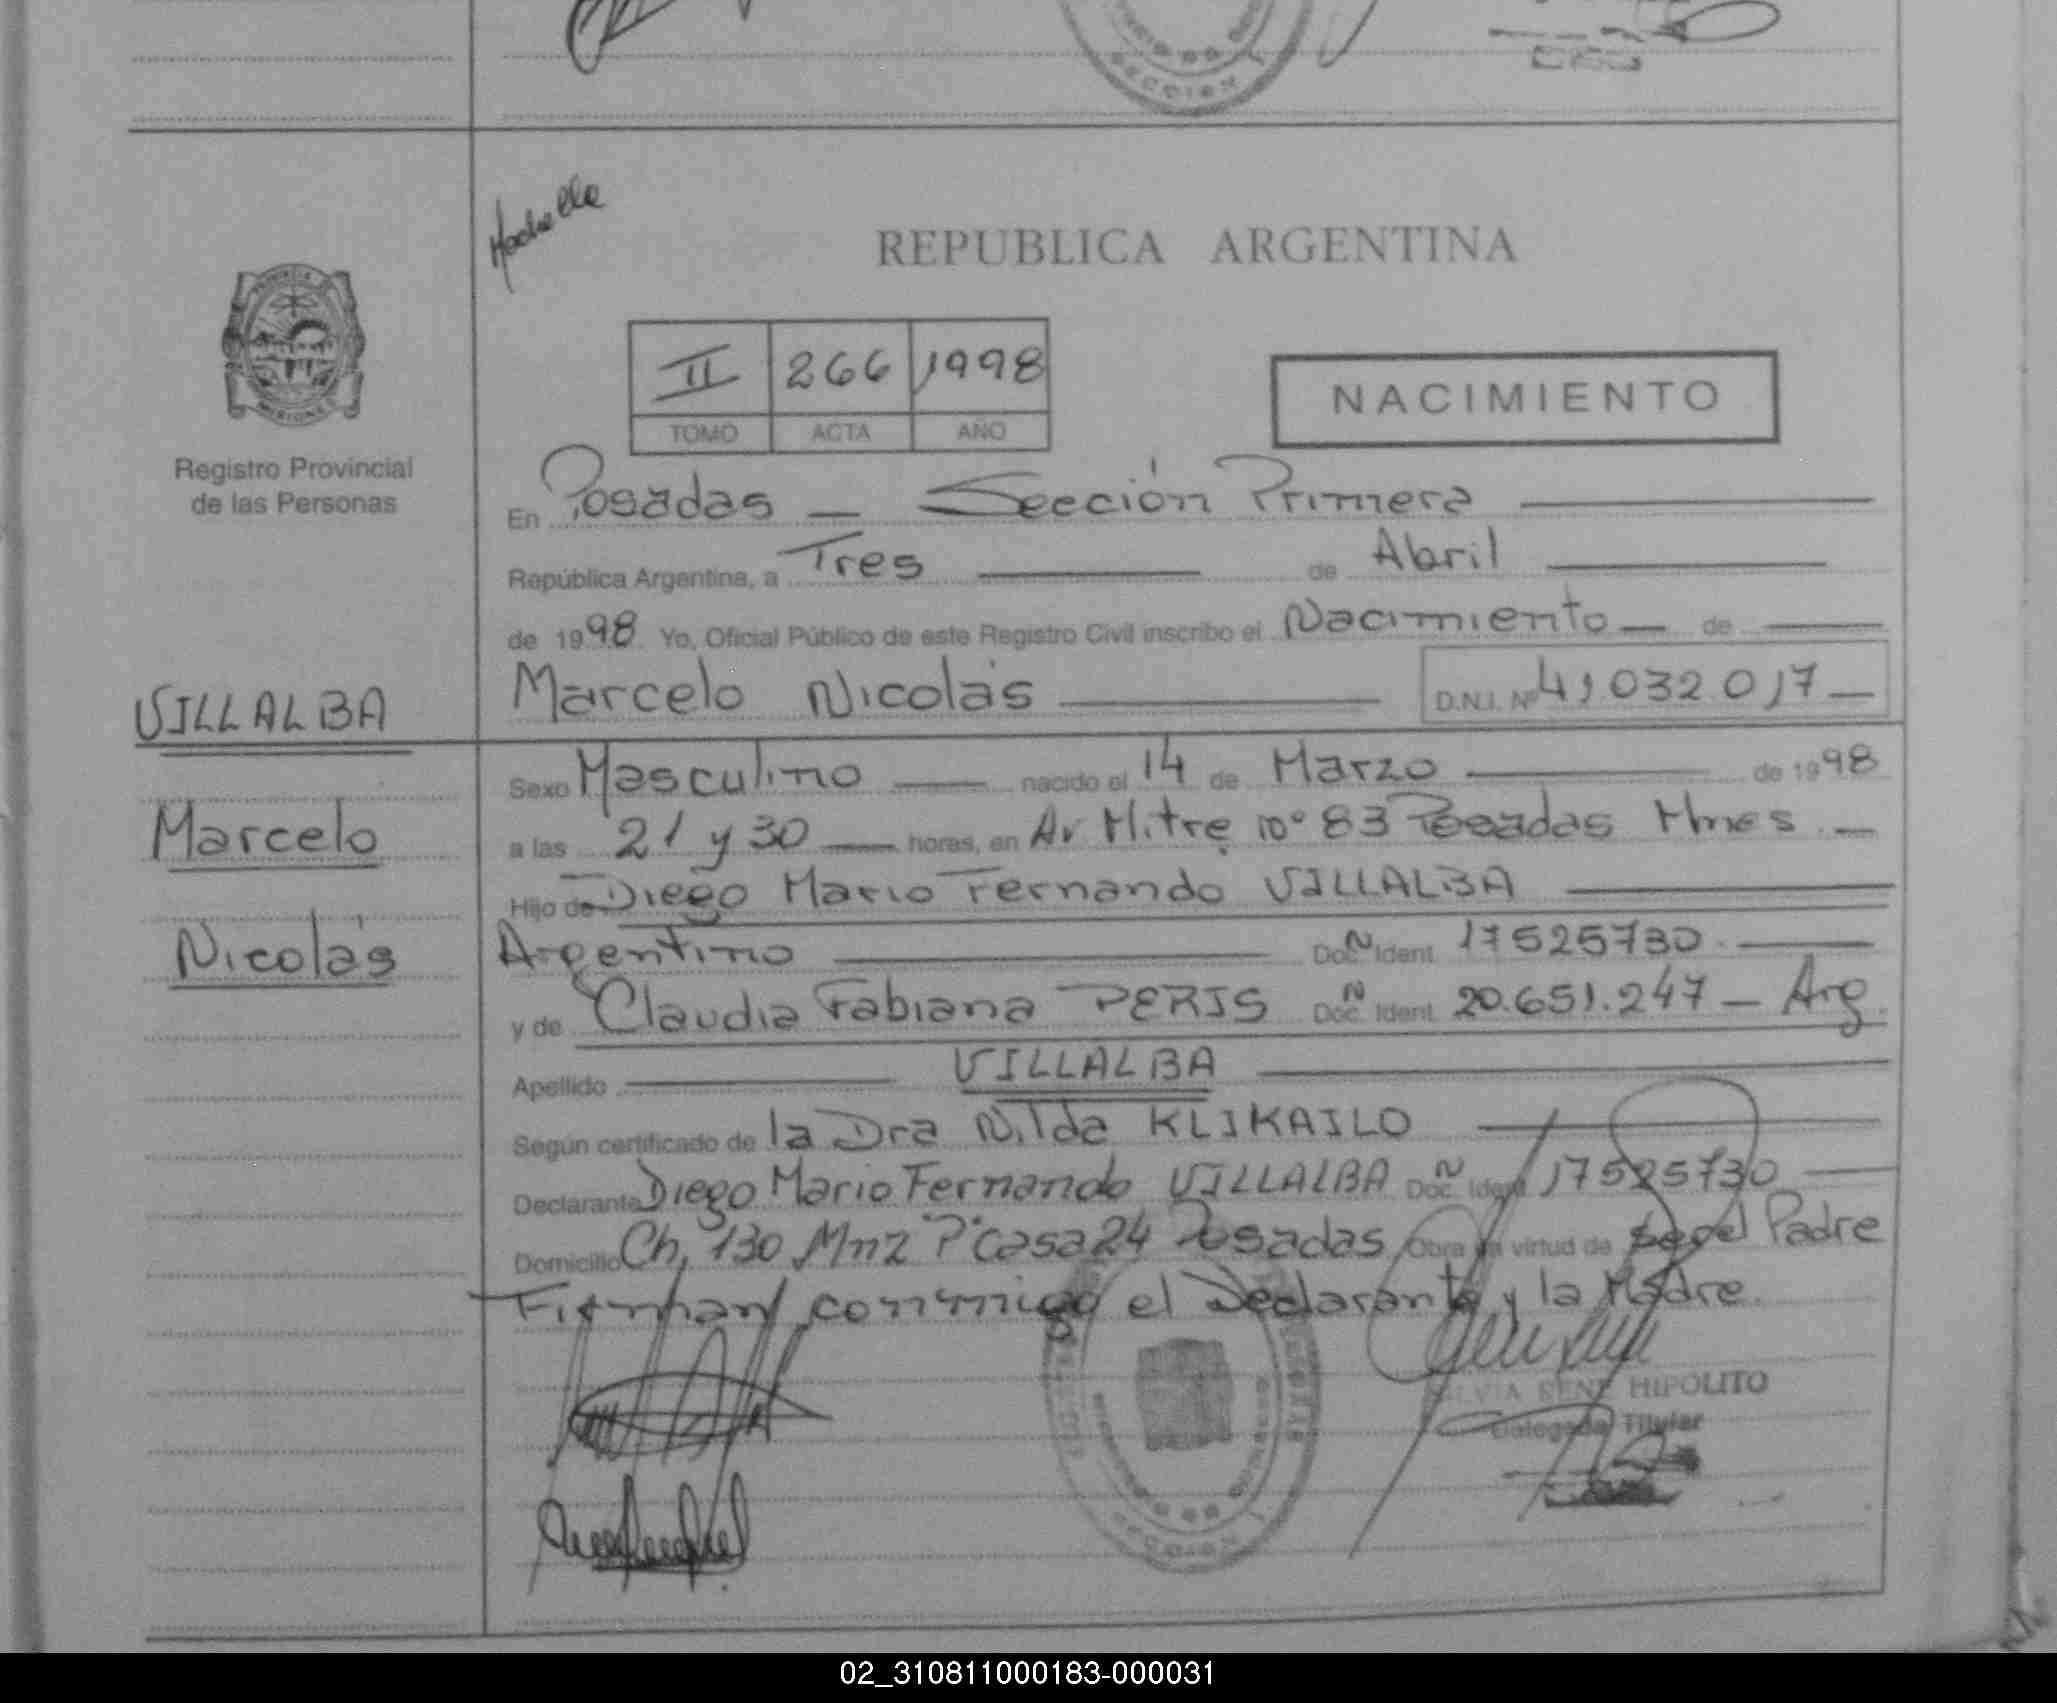 REPUBLICA ARGENTINA
II 266 1998
TOMO ACTA AÑO
NACIMIENTO
Registro Provincial
de las Personas
VILLALBA
Marcelo
Nicolás
En Posadas — Sección Primera
República Argentina, a Tres de Abril
de 1998 Yo, Oficial Público de este Registro Civil inscribo el Nacimiento — de
Marcelo Nicolás D.N.I. Nº 41032017
Sexo Masculino nacido el 14 de Marzo de 1998
a las 21 y 30 horas, en Av Mitre nº 83 Posadas Mnes
Hijo de Diego Mario Fernando VILLALBA
Argentino Doc. Ident. 17525730
y de Claudia Fabiana PERIS Doc. Ident. 20.651.247 — Arg
Apellido VILLALBA
Según certificado de la Dra Nilda KLIKAILO
Declarante Diego Mario Fernando VILLALBA Doc. Ident. 17525730
Domicilio Ch, 130 Mnz "P" Casa 24 Posadas Obra en virtud de ser el Padre
Firman conmigo el Declarante y la Madre.
SILVIA RENE HIPOLITO
Delegada Titular
SECCION 1
02_310811000183-000031